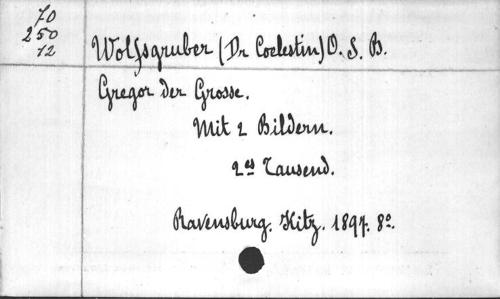 70
250
12
Wolfsgruber (Dr Coelestin) O. S. B.
Gregor der Grosse.
Mit 2 Bildern.
2es Tausend.
Ravensburg. Kitz. 1897. 8o.